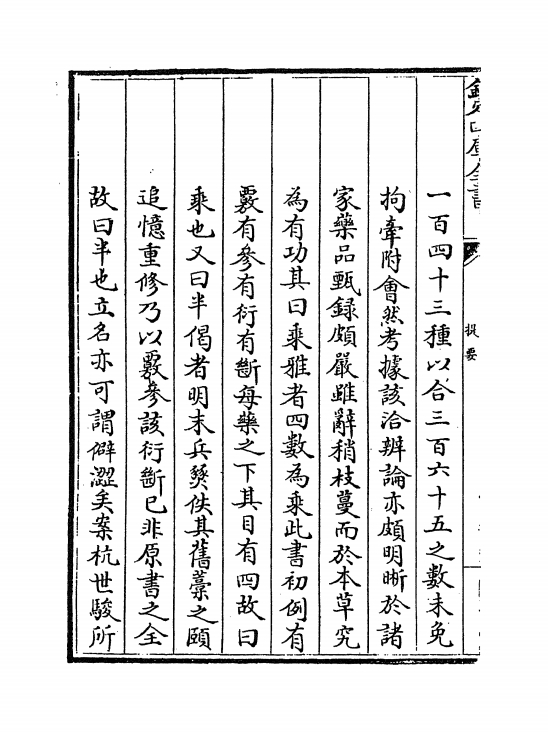 欽定四庫全書
提要
一百四十三種以合三百六十五之數未免
拘牽附會然考據該洽辨論亦頗明晰於諸
家藥品甄録頗嚴雖辭稍枝蔓而於本草究
為有功其曰乘雅者四數為乘此書初例有
覈有參有衍有斷每藥之下其目有四故曰
乘也又曰半偈者明末兵燹佚其舊藁之頤
追憶重修乃以覈參該衍斷已非原書之全
故曰半也立名亦可謂僻澀矣案杭世駿所